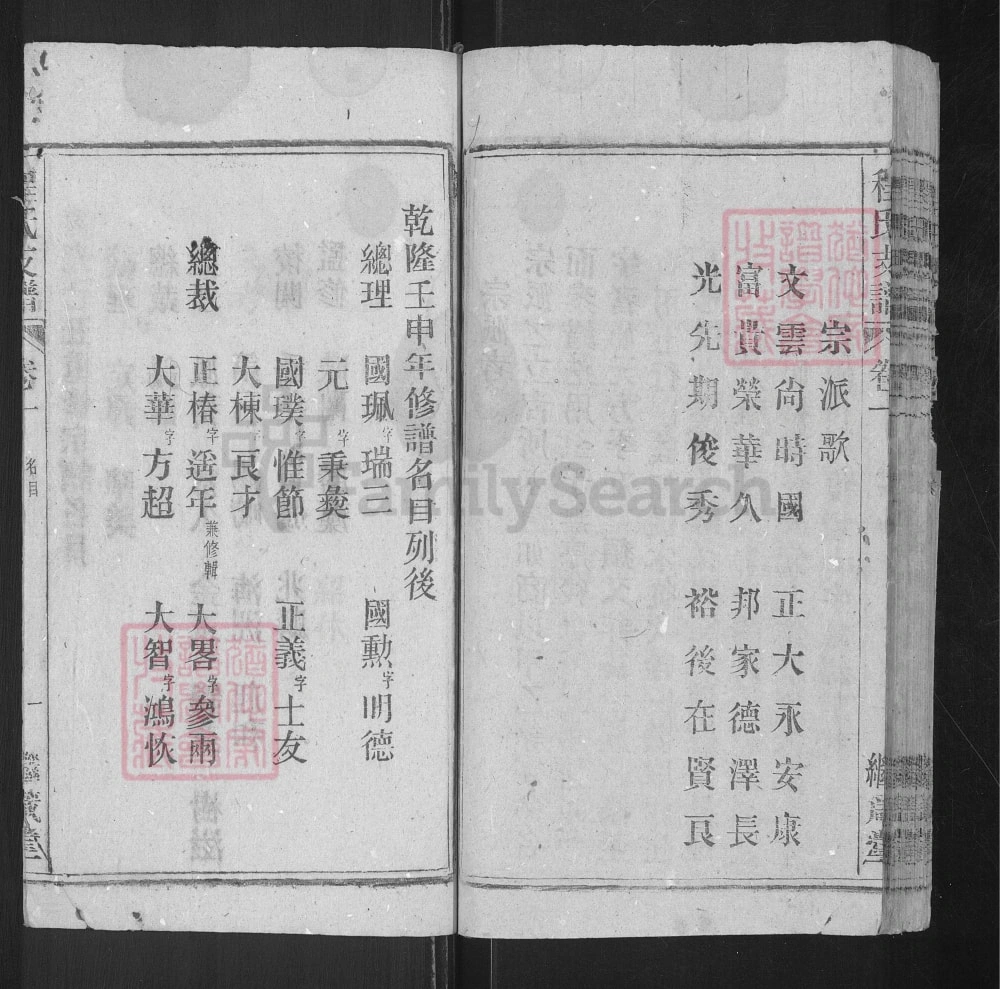 程氏支譜 卷一
宗派歌
文雲尚時國 正大永安康
富貴榮華久 邦家德澤長
光先期俊秀 裕後在賢良
乾隆壬申年修譜名目列後
總理 國珮字瑞三 國勳字明德
元字秉彝
國璞字惟節 正義字士友
大棟字良才
總裁 正椿字遐年兼修輯 大畧字參兩
大華字方超 大智字鴻恢
程氏支譜 卷一 名目 一
FamilySearch